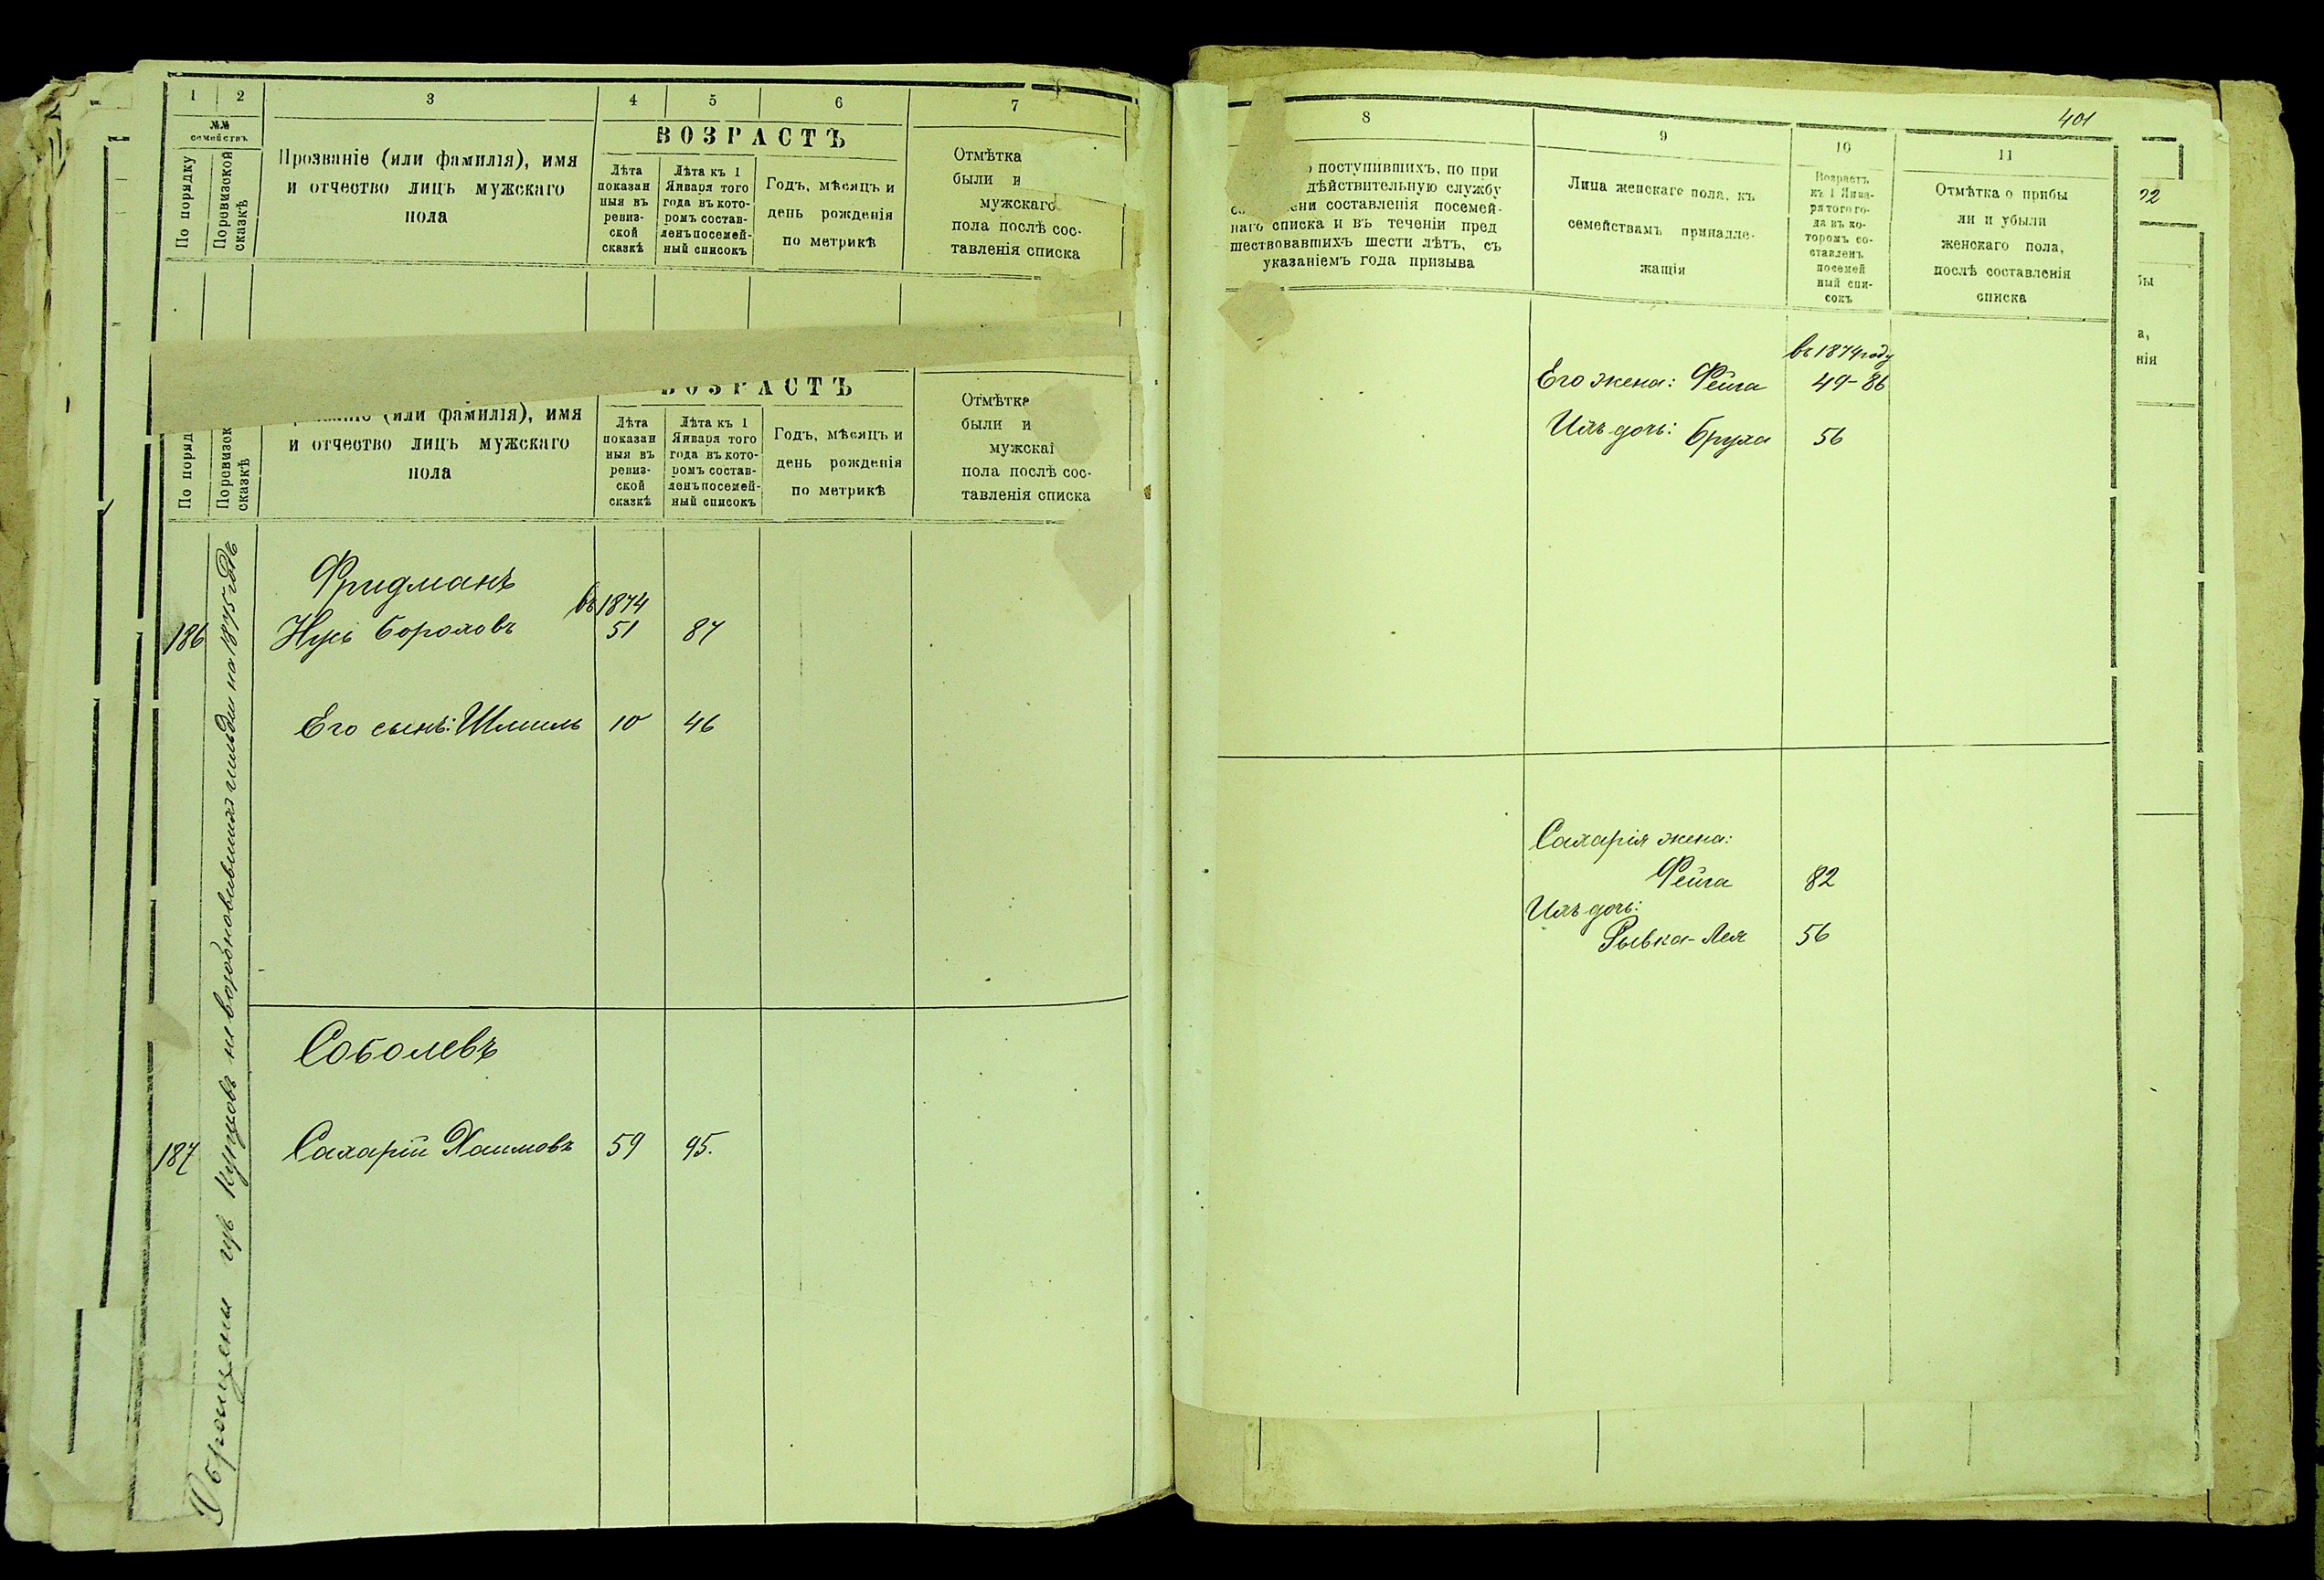 1 2 3 4 5 6 7
№№ семействъ
По порядку
Поревизской сказкѣ
Прозваніе (или фамилія), имя
и отчество лицъ мужскаго
пола
ВОЗРАСТЪ
Лѣта
показан
ныя въ
ревиз-
ской
сказкѣ
Лѣта къ 1
Января того
года въ кото-
ромъ состав-
ленъ посемей-
ный списокъ
Годъ, мѣсяцъ и
день рожденія
по метрикѣ
Отмѣтка
были и
мужскаго
пола послѣ сос-
тавленія списка
(или фамилія), имя
и отчество лицъ мужскаго
пола
ВОЗРАСТЪ
Лѣта
показан
ныя въ
ревиз-
ской
сказкѣ
Лѣта къ 1
Января того
года въ кото-
ромъ состав-
ленъ посемей-
ный списокъ
Годъ, мѣсяцъ и
день рожденія
по метрикѣ
Отмѣтка
были и
мужскаг
пола послѣ сос-
тавленія списка
По поряд
Поревизск
сказкѣ
Фридманъ
въ 1874
186 Борохов 51 87
Его сынъ: Шмиль 10 46
Соболевъ
187 Сахарій Хаимовъ 59 95.
купцовъ не возобновившихъ на 1875 годъ
401
8 9 10 11
поступившихъ, по при
дѣйствительную службу
ени составленія посемей-
наго списка и въ теченіи пред
шествовавшихъ шести лѣтъ, съ
указаніемъ года призыва
Лица женскаго пола, къ
семействамъ принадле-
жащія
Возрастъ
къ 1 Янва-
ря того го-
да въ ко-
торомъ со-
ставленъ
посемей
ный спи-
сокъ
Отмѣтка о прибы
ли и убыли
женскаго пола,
послѣ составленія
списка
въ 1874 году
Его жена: Фейга 49-86
Ихъ дочь: Бруха 56
Сахарія жена:
Фейга 82
Ихъ дочь:
Рывка-Лея 56
бы
а,
нія